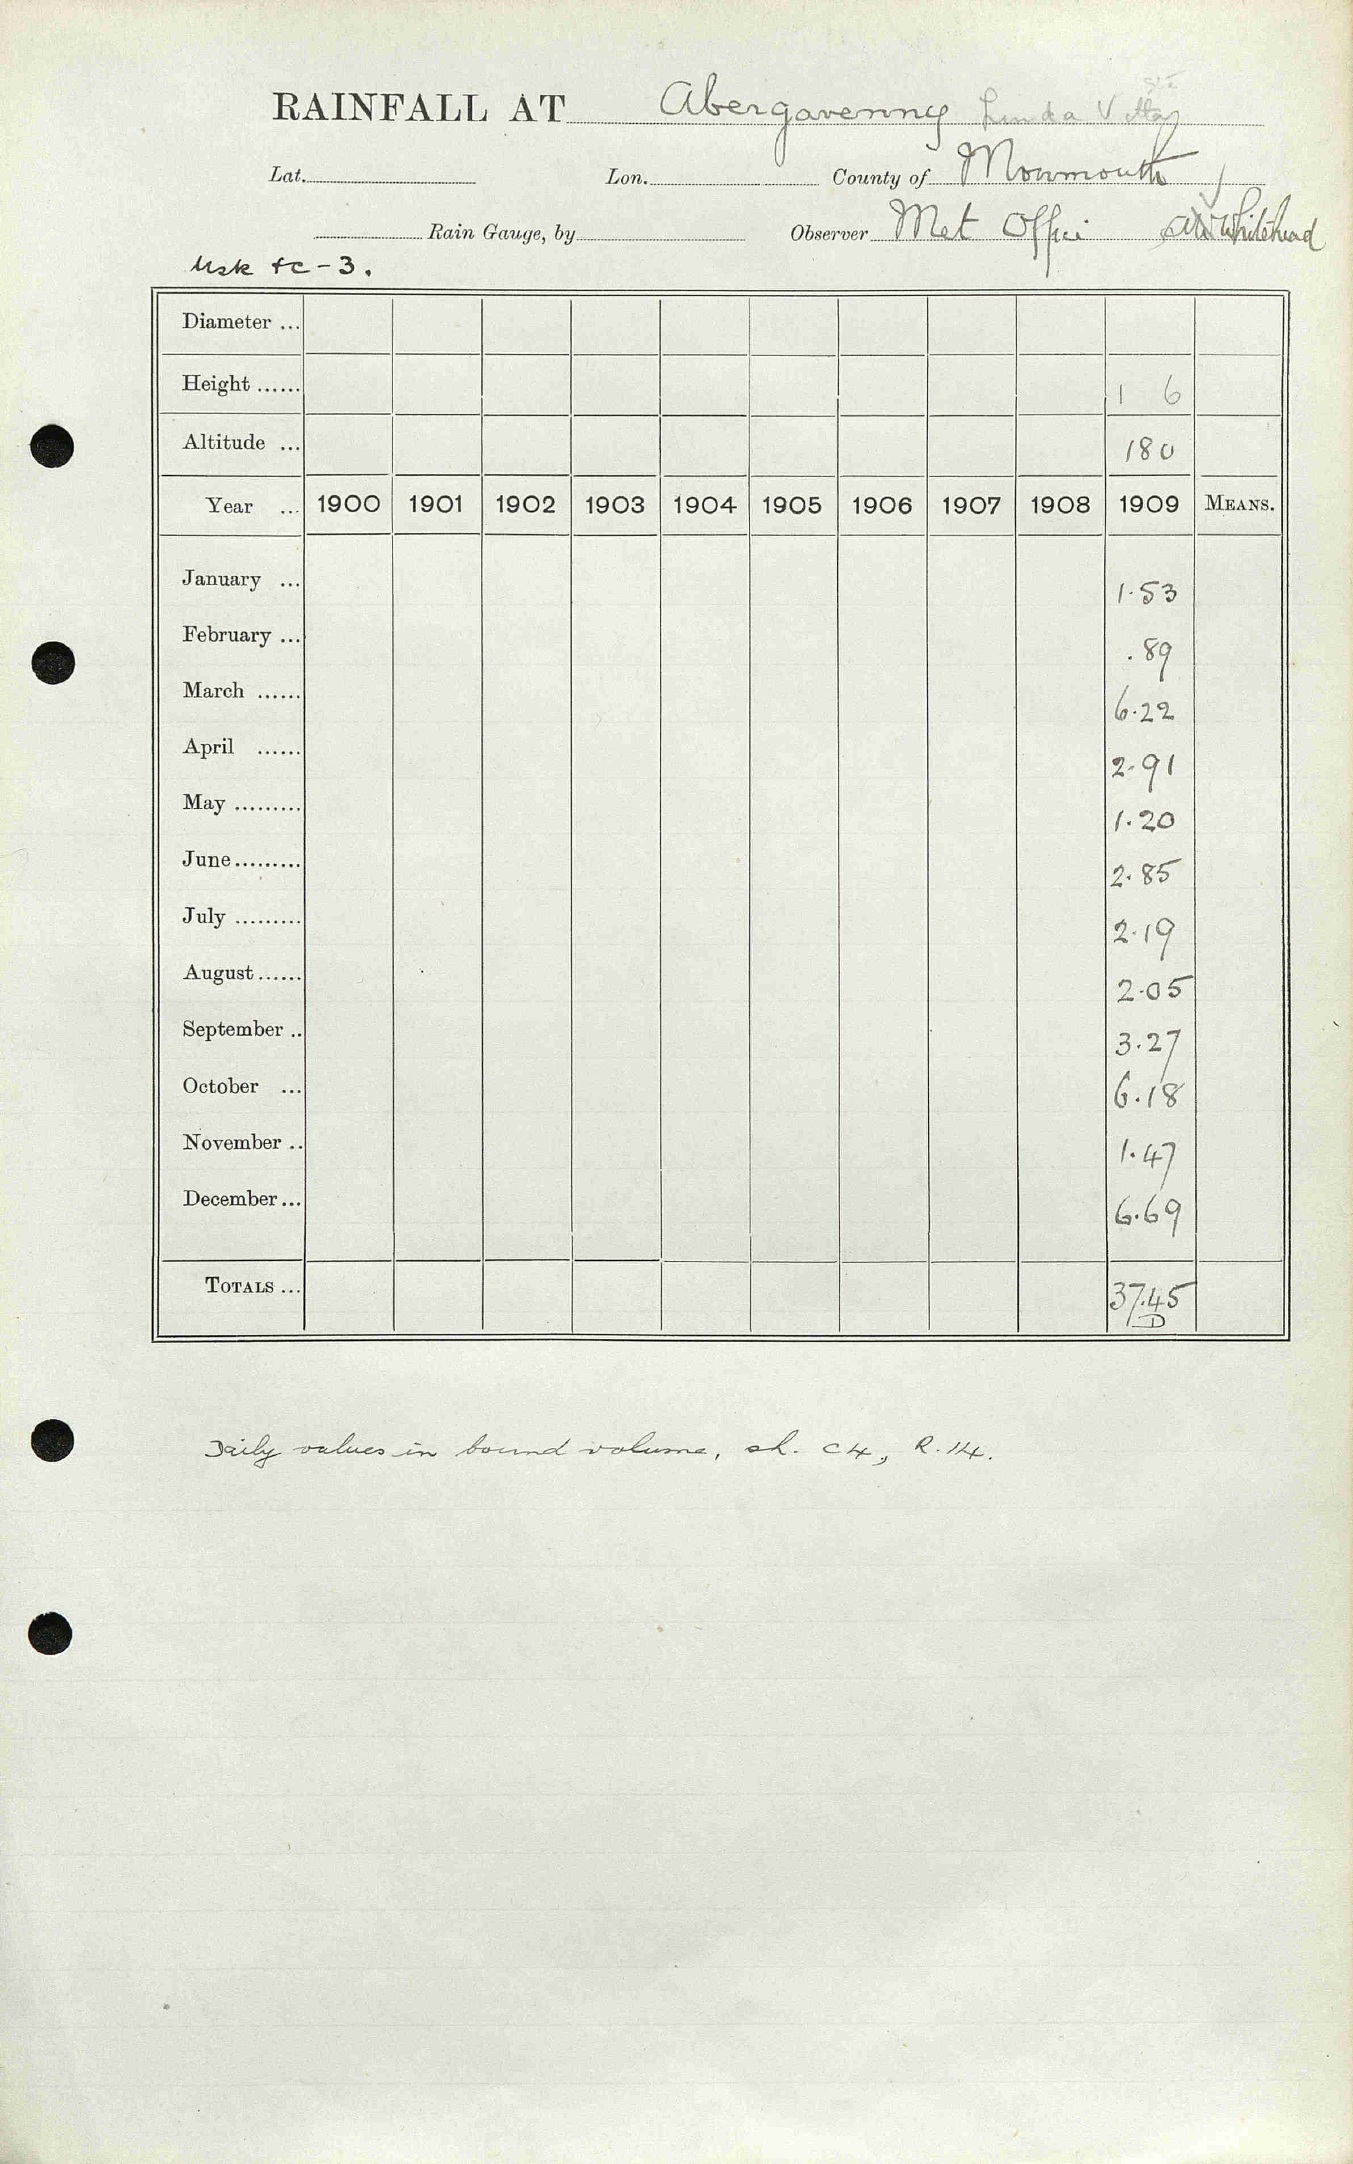 RAINFALL AT Abergavenny Linda Vista
Lat. Lon. County of Monmouth
Rain Gauge, by Observer Met Office Whitehead
Usk &c - 3.
Diameter ...
Height ...... 1 6
Altitude ... 180
Year ... 1900 1901 1902 1903 1904 1905 1906 1907 1908 1909 MEANS.
January ... 1.53
February ... .89
March ...... 6.22
April ...... 2.91
May ......... 1.20
June ......... 2.85
July ......... 2.19
August ...... 2.05
September .. 3.27
October ... 6.18
November .. 1.47
December ... 6.69
TOTALS ... 37.45
D
Daily values in bound volume, sh. C4, R.14.